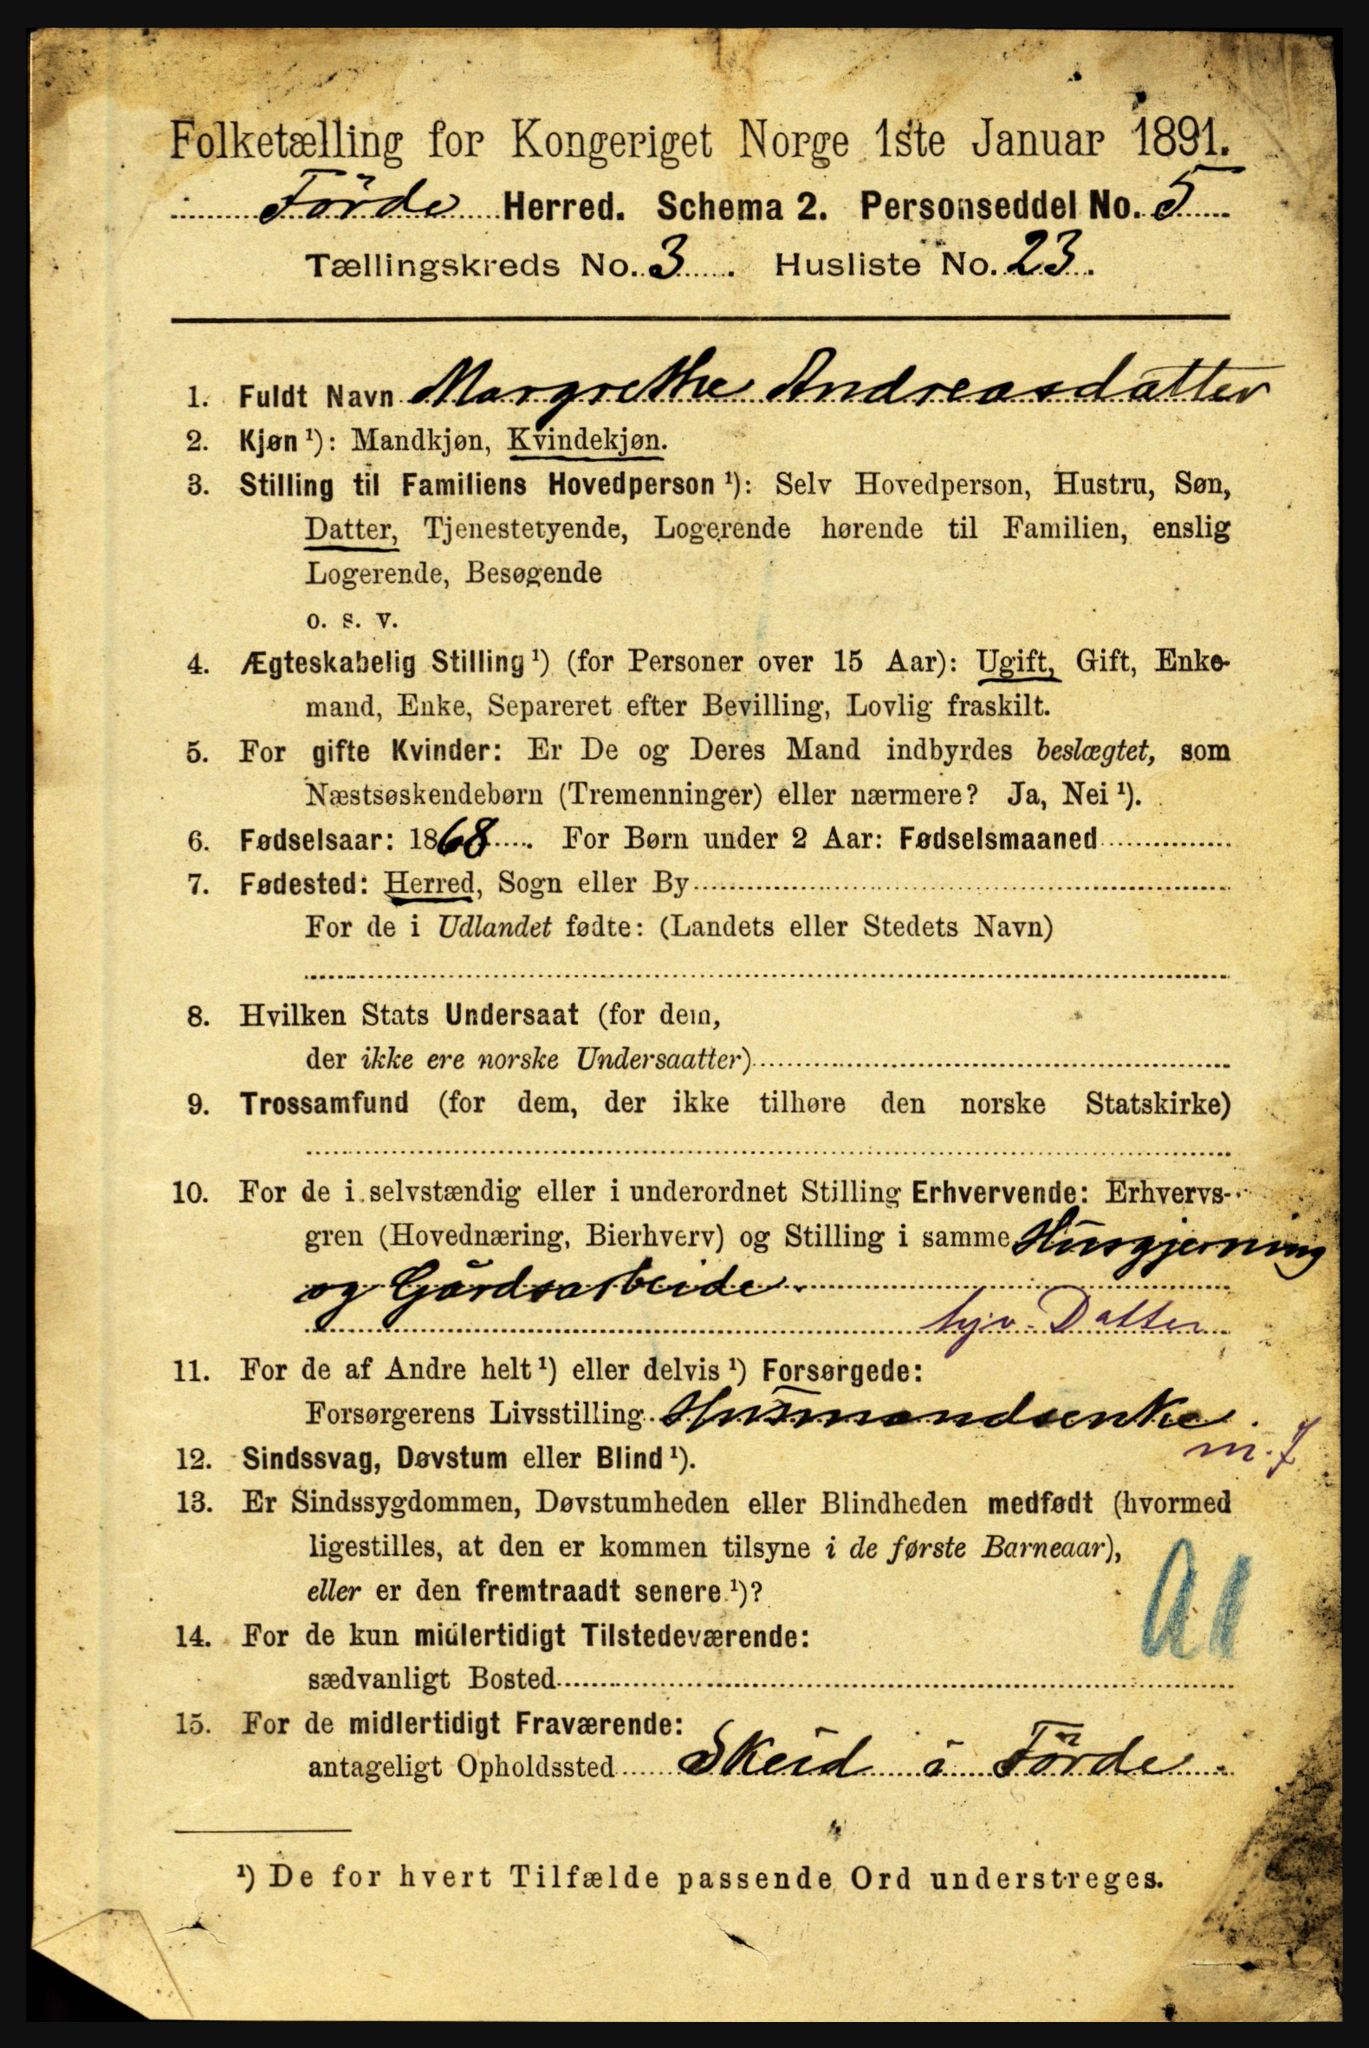 Folketælling for Kongeriget Norge 1ste Januar 1891.
Förde Herred. Schema 2. Personseddel No. 5
Tællingskreds No. 3. Husliste No. 23.
1. Fuldt Navn Margrethe Andreasdatter
2. Kjøn ¹): Mandkjøn, Kvindekjøn.
3. Stilling til Familiens Hovedperson ¹): Selv Hovedperson, Hustru, Søn,
Datter, Tjenestetyende, Logerende hørende til Familien, enslig
Logerende, Besøgende
o. s. v.
4. Ægteskabelig Stilling ¹) (for Personer over 15 Aar): Ugift, Gift, Enke-
mand, Enke, Separeret efter Bevilling, Lovlig fraskilt.
5. For gifte Kvinder: Er De og Deres Mand indbyrdes beslægtet, som
Næstsøskendebørn (Tremenninger) eller nærmere? Ja, Nei ¹).
6. Fødselsaar: 1868. For Børn under 2 Aar: Fødselsmaaned
7. Fødested: Herred, Sogn eller By
For de i Udlandet fødte: (Landets eller Stedets Navn)
8. Hvilken Stats Undersaat (for dem,
der ikke ere norske Undersaatter)
9. Trossamfund (for dem, der ikke tilhøre den norske Statskirke)
10. For de i selvstændig eller i underordnet Stilling Erhvervende: Erhvervs-
gren (Hovednæring, Bierhverv) og Stilling i samme Husgjerning
og Gårdsarbeide.
hjv. Datter
11. For de af Andre helt ¹) eller delvis ¹) Forsørgede:
Forsørgerens Livsstilling Husmandsenke.
m. J
12. Sindssvag, Døvstum eller Blind ¹).
13. Er Sindssygdommen, Døvstumheden eller Blindheden medfødt (hvormed
ligestilles, at den er kommen tilsyne i de første Barneaar),
eller er den fremtraadt senere ¹)?
A1
14. For de kun midlertidigt Tilstedeværende:
sædvanligt Bosted
15. For de midlertidigt Fraværende:
antageligt Opholdssted Skeid i Förde.
¹) De for hvert Tilfælde passende Ord understreges.